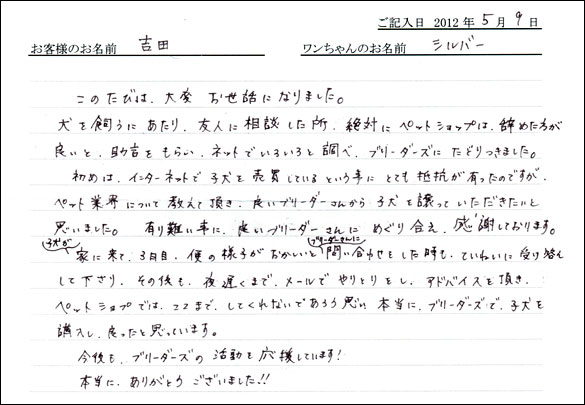 ご記入日 2012年5月9日
お客様のお名前 吉田 ワンちゃんのお名前 シルバー
このたびは、大変 お世話になりました。
犬を飼うにあたり、友人に相談した所、絶対にペットショップは、辞めた方が
良いと、助言をもらい、ネットでいろいろと調べ、ブリーダーズにたどりつきました。
初めは、インターネットで子犬を売買しているという事にとても抵抗が有ったのですが、
ペット業界について教えて頂き、良いブリーダーさんから子犬を譲っていただきたいと
思いました。 有り難い事に、良いブリーダーさんにめぐり合え、感謝しております。
子犬が ブリーダーさんに
家に来て、3日目、便の様子がおかしいと問い合わせをした時も、ていねいに受け答え
して下さり、その後も、夜遅くまで、メールでやりとりをし、アドバイスを頂き、
ペットショップでは、ココまで、してくれないであろう思い 本当に、ブリーダーズで、子犬を
購入し、良ったと思っています。
今後も、ブリーダーズの活動を応援しています!
本当に、ありがとうございました!!